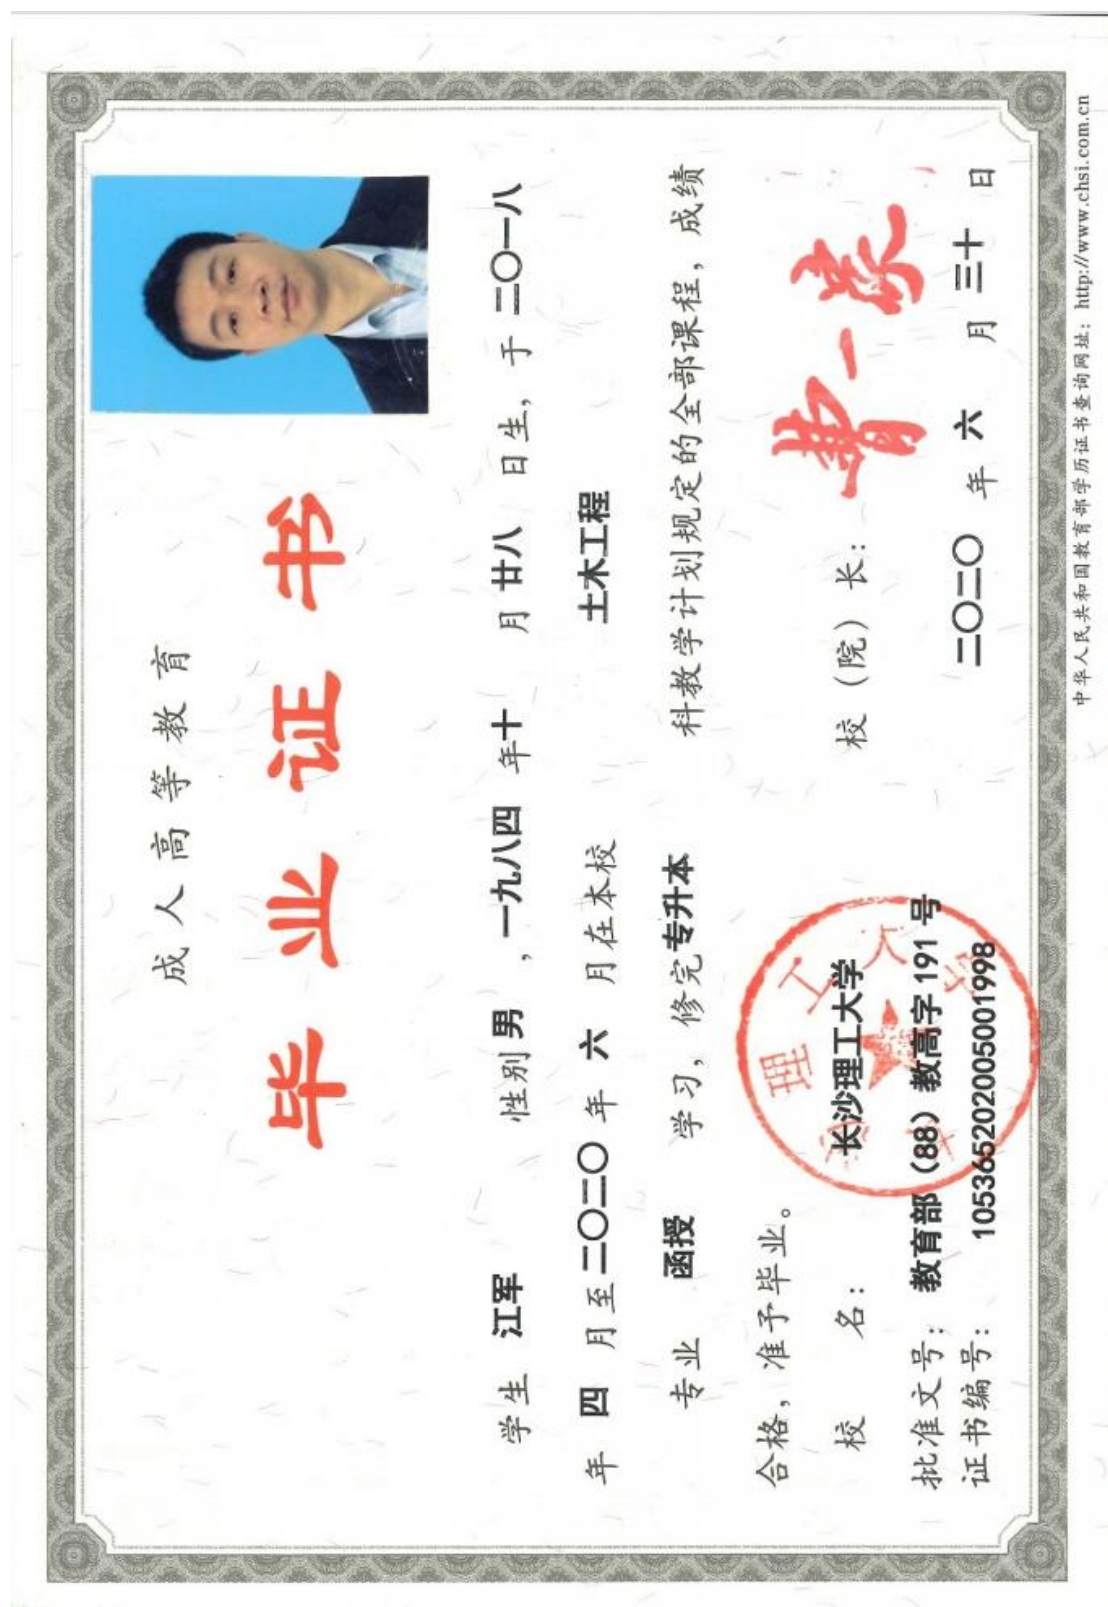 成人高等教育
毕业证书
学生 江军 性别 男 ，一九八四 年 十 月 廿八 日生，于 二〇一八
年 四 月至 二〇二〇 年 六 月在本校 土木工程
专业 函授 学习，修完 专升本 科教学计划规定的全部课程，成绩
合格，准予毕业。
校 名： 长沙理工大学 校（院）长：
批准文号： 教育部（88）教高字191号
证书编号： 105365202005001998 二〇二〇 年 六 月 三十 日
理工大学
中华人民共和国教育部学历证书查询网址：http://www.chsi.com.cn